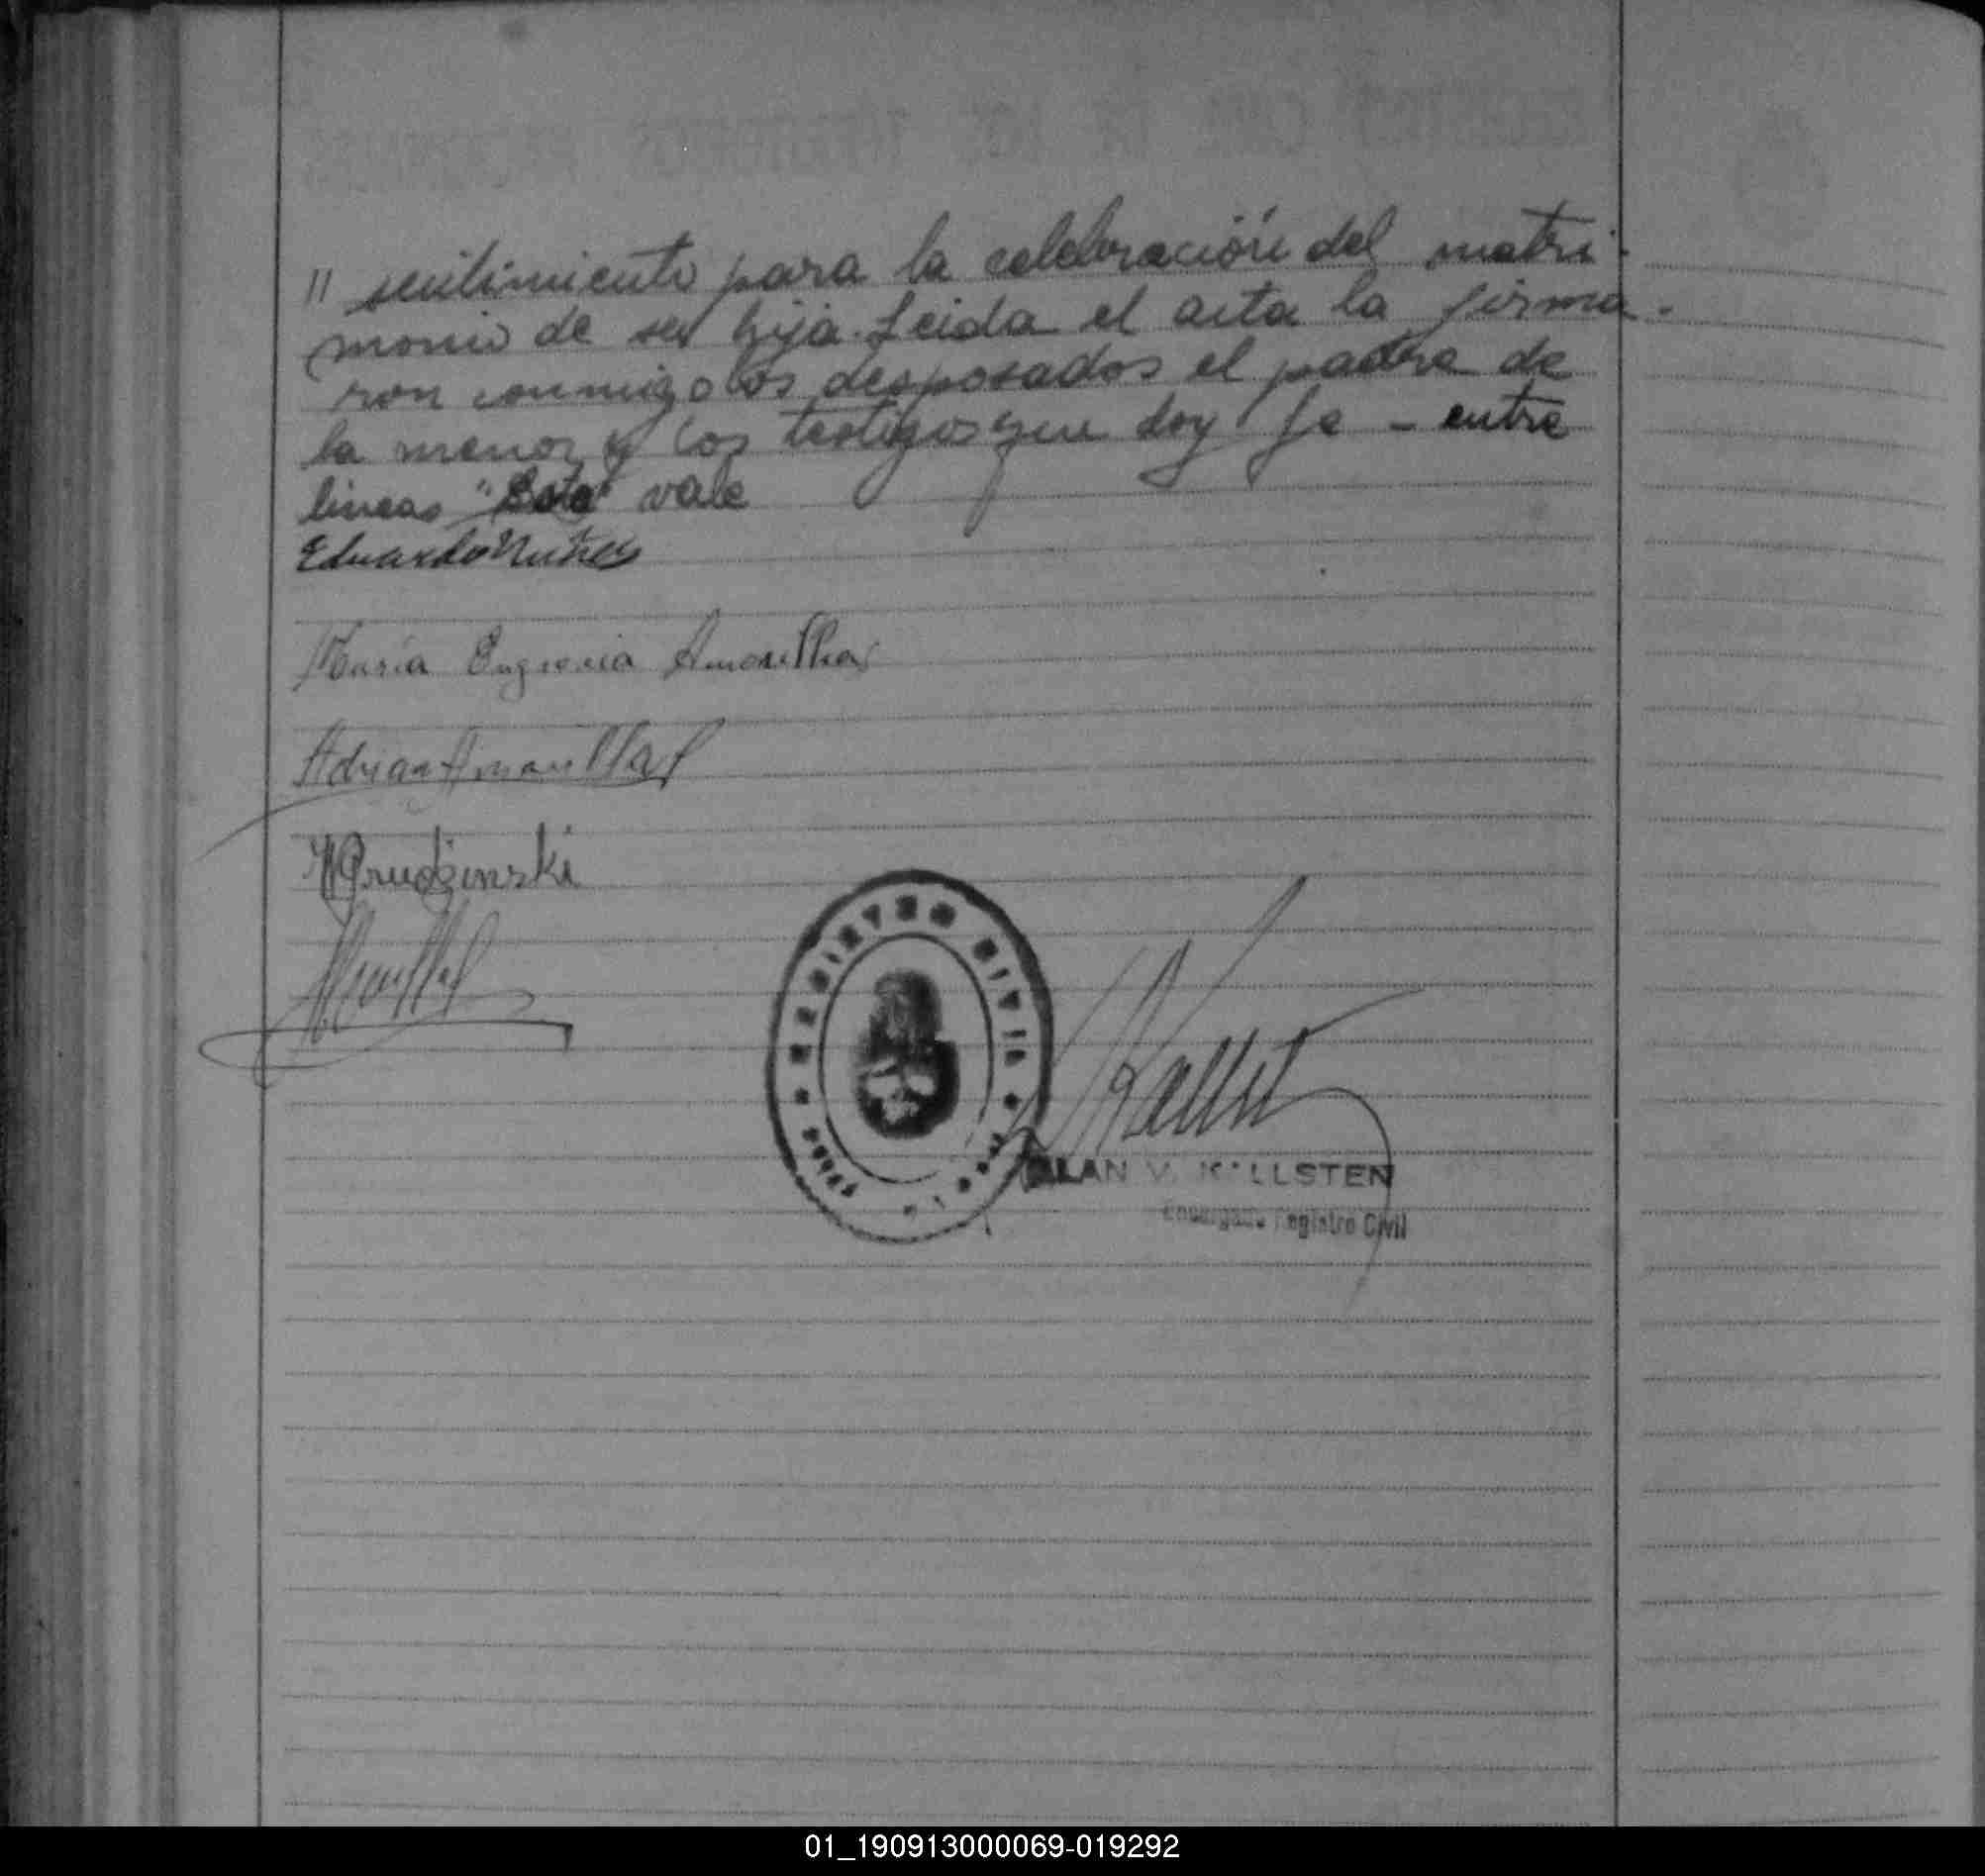 " sentimiento para la celebración del matri-
monio de su hija. Leida el acta la firma-
ron conmigo los desposados el padre de
la menor y los testigos que doy fe - entre
lineas "Esta" vale
Eduardo Nuñez
María Eugenia Amarillas
Adrian Amarillas
Prudzinski
REGISTRO CIVIL
ALAN V. KALLSTEN
Encargado Registro Civil
01_190913000069-019292